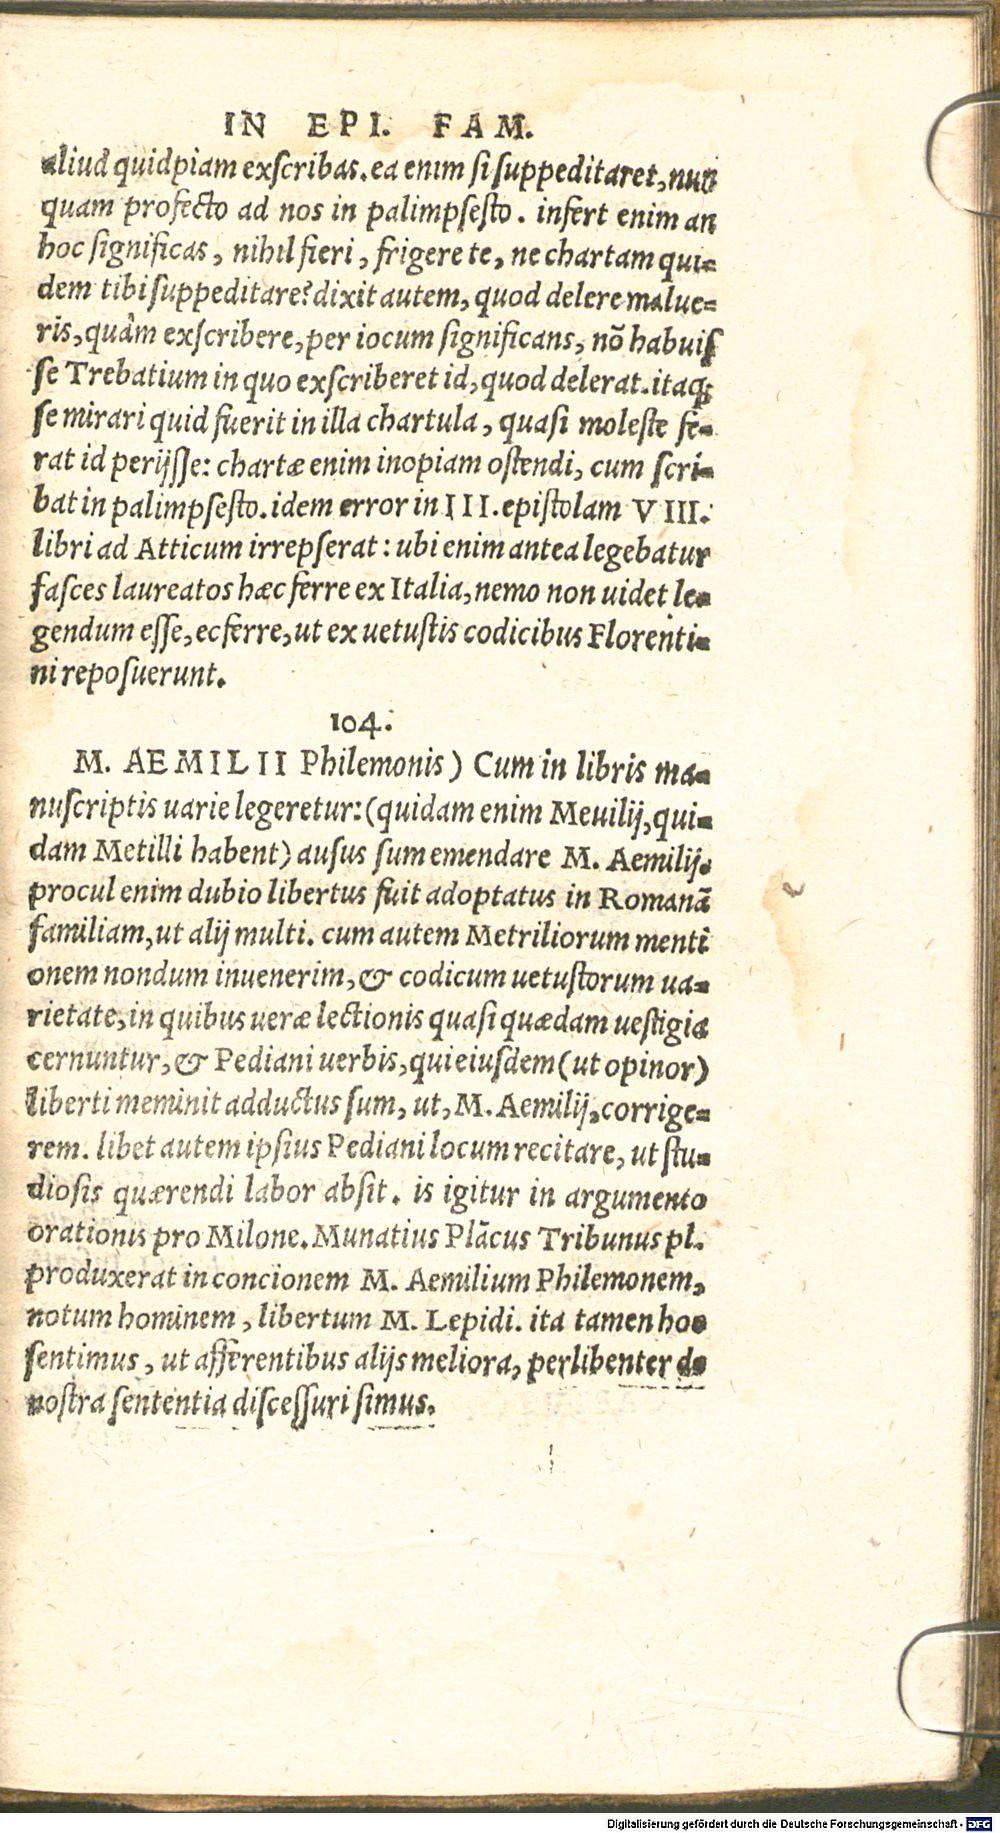 IN EPI. FAM.
aliud quidpiam exscribas. ea enim si suppeditaret, nun
quam profecto ad nos in palimpsesto. infert enim an
hoc significas, nihil fieri, frigere te, ne chartam qui=
dem tibi suppeditare? dixit autem, quod delere malue=
ris, quàm exscribere, per iocum significans, nõ habuis
se Trebatium in quo exscriberet id, quod delerat. itaq;
se mirari quid fuerit in illa chartula, quasi moleste fe=
rat id perijsse: chartæ enim inopiam ostendi, cum scri=
bat in palimpsesto. idem error in III. epistolam VIII.
libri ad Atticum irrepserat: ubi enim antea legebatur
fasces laureatos hæc ferre ex Italia, nemo non uidet le=
gendum esse, ecferre, ut ex uetustis codicibus Florenti=
ni reposuerunt.
104.
M. AEMILII Philemonis) Cum in libris ma=
nuscriptis uarie legeretur: (quidam enim Meuilij, qui=
dam Metilli habent) ausus sum emendare M. Aemilij.
procul enim dubio libertus fuit adoptatus in Romanã
familiam, ut alij multi. cum autem Metriliorum menti
onem nondum inuenerim, & codicum uetustorum ua=
rietate, in quibus ueræ lectionis quasi quædam uestigia
cernuntur, & Pediani uerbis, qui eiusdem (ut opinor)
liberti meminit adductus sum, ut, M. Aemilij, corrige=
rem. libet autem ipsius Pediani locum recitare, ut stu=
diosis quærendi labor absit. is igitur in argumento
orationis pro Milone. Munatius Plãcus Tribunus pl.
produxerat in concionem M. Aemilium Philemonem,
notum hominem, libertum M. Lepidi. ita tamen hoc
sentimus, ut afferentibus alijs meliora, perlibenter de
nostra sententia discessuri simus.
Digitalisierung gefördert durch die Deutsche Forschungsgemeinschaft - DFG